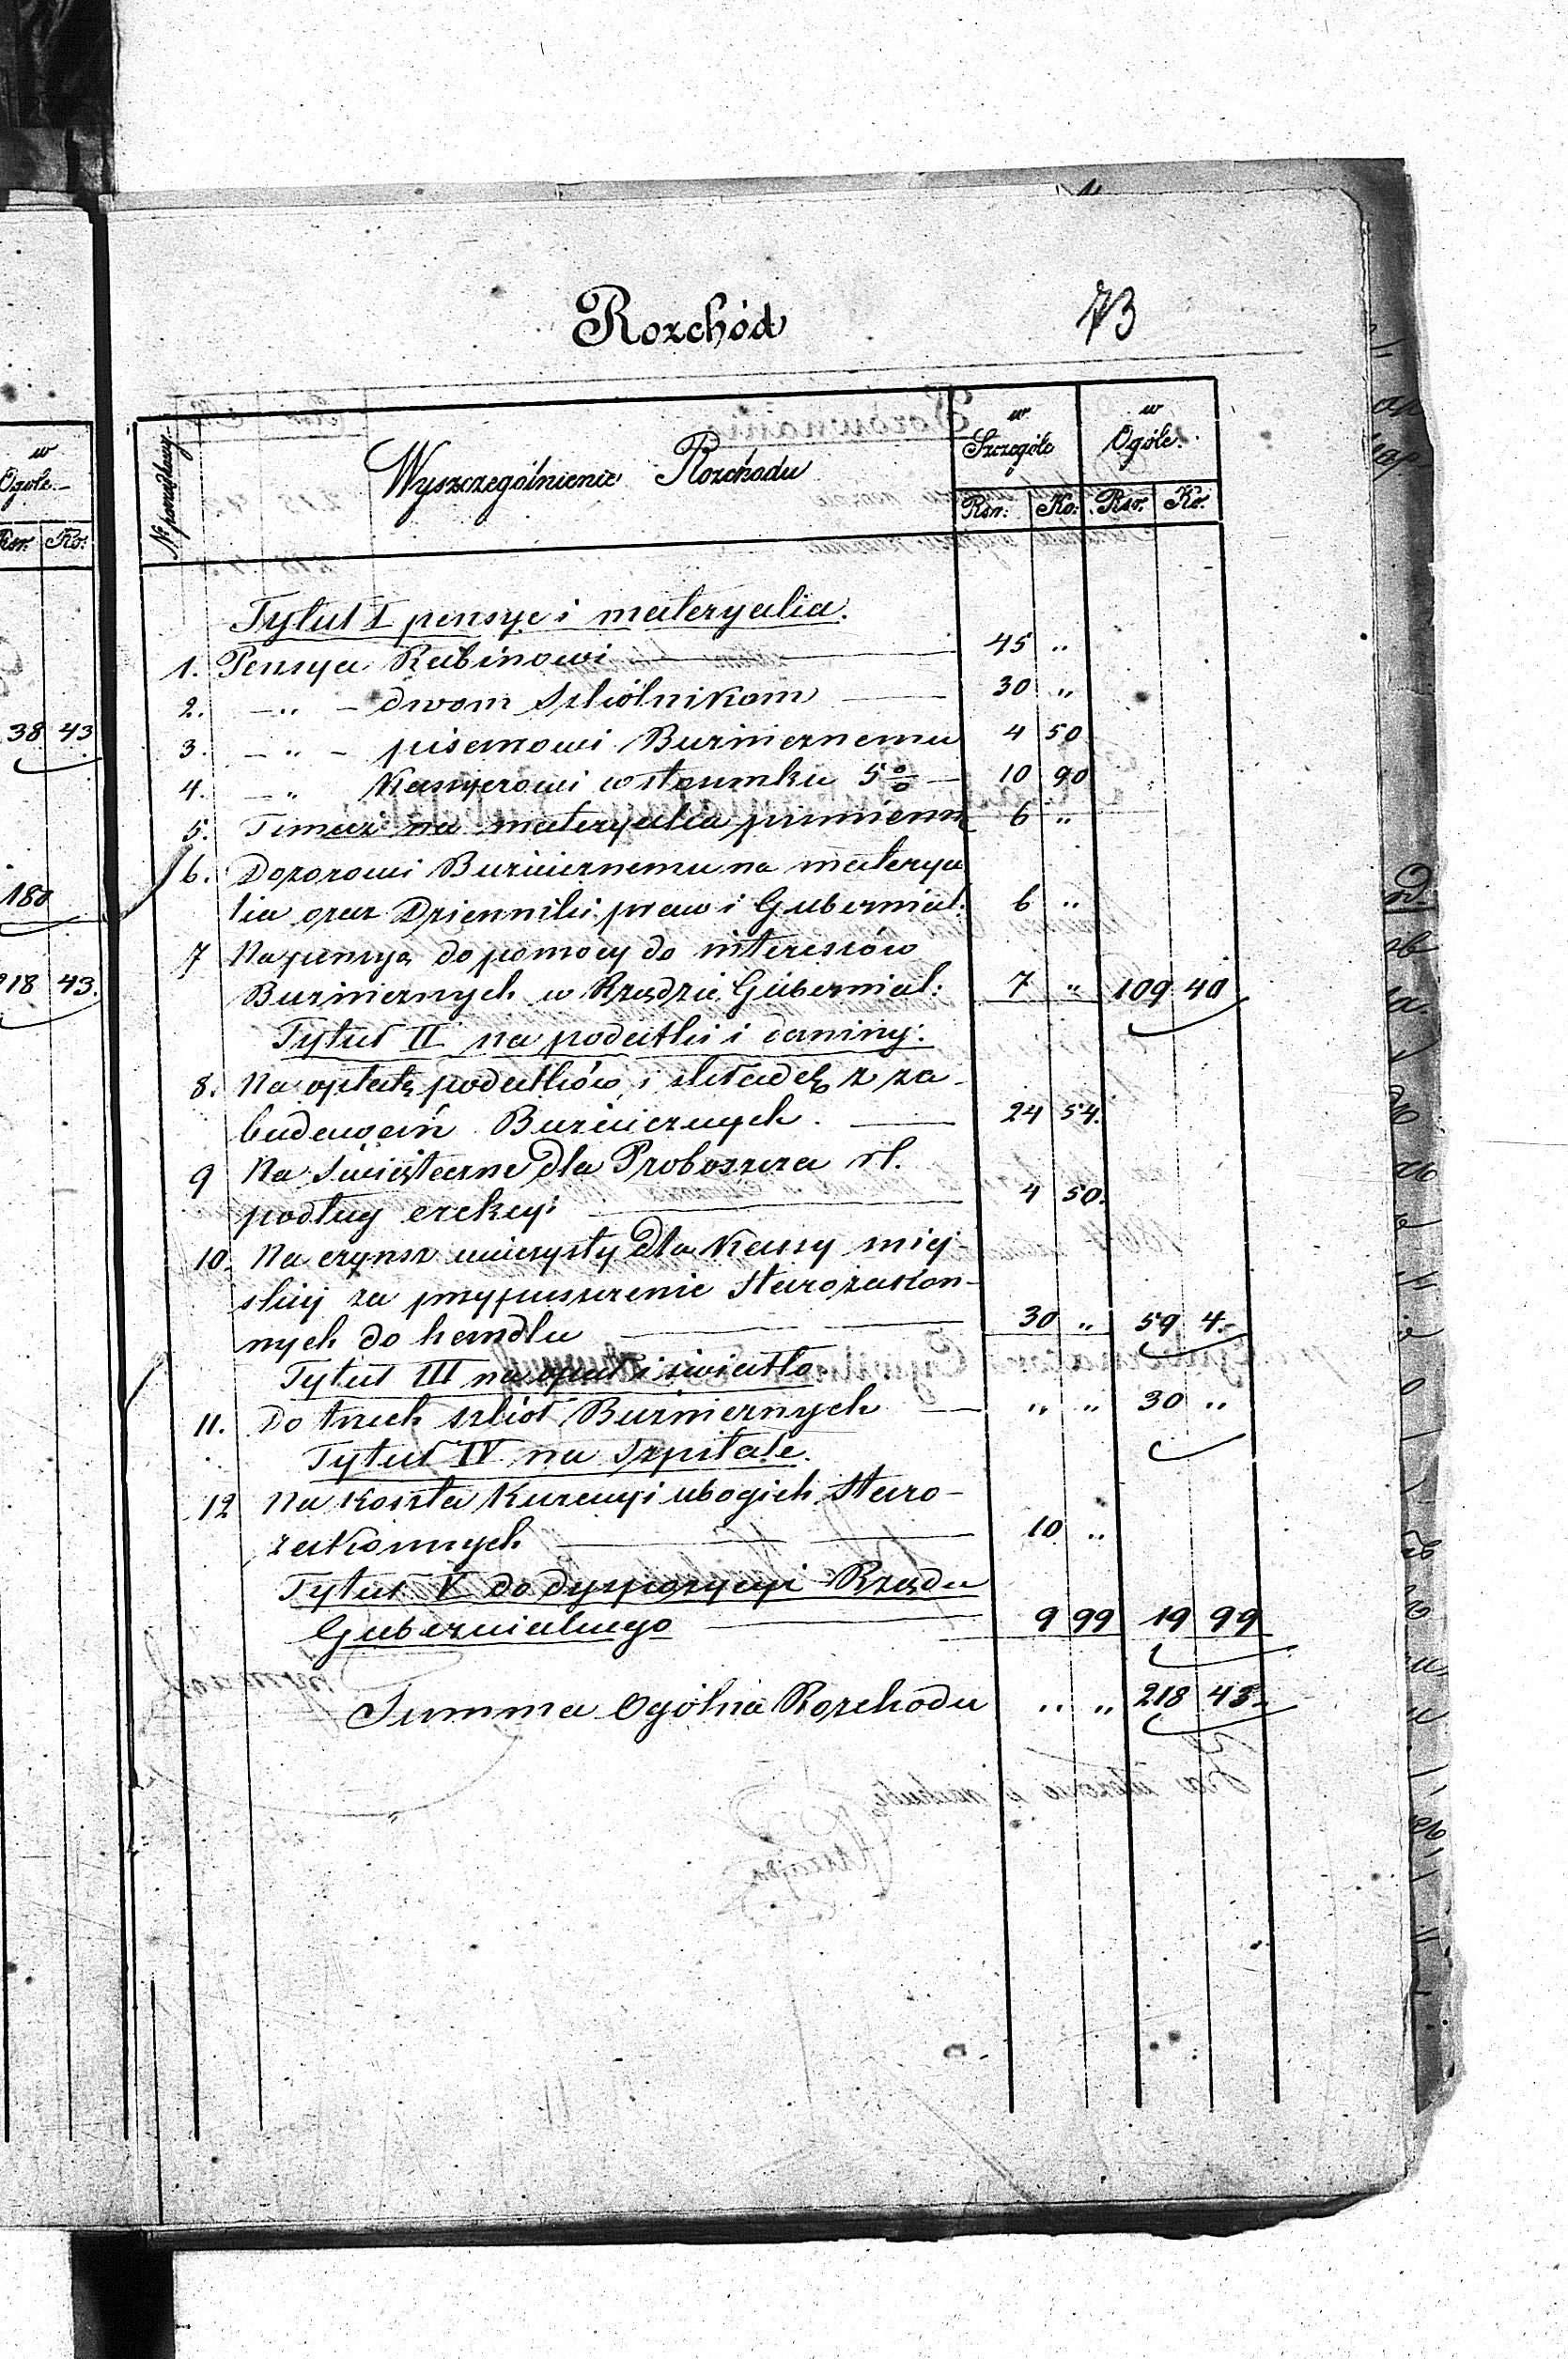 Rozchód 73
N porządkowy
Wyszczególnienie Rozchodu
w Szczególe
w Ogóle.
Rsr: Ko: Rsr. Ko.
Tytuł I pensye i materyalia.
1. Pensya Rabinowi 45 „
2. — „ — dwom Szkólnikom 30 „
3. — „ — pisarzowi Bużnicznemu 4 50
4. — „ Kassyerowi w stosunku 5 % 10 90
5. Temuż na materyalia piśmienn 6 „
6. Dozorowi Bużniczemu na materya
lia oraz Dzienniki praw i Gubernial: 6 „
7 Na pensyą do pomocy do interesów
Bużnicznych w Rządzie Gubernial: 7 „ 109 40
Tytuł II na podatki i daniny:
8. Na opłatę podatków i składek z za-
budowań Bużnicznych. 24 54.
9 Na Świąteczne dla Proboszcza rł.
podług erekcyi 4 50.
10. Na czynsz wieczysty dla Kassy miej-
skiej za przypuszczenie Starozakon-
nych do handlu 30 „ 59 4.-
Tytuł III na opał i światło
11. Do trzech szkół Bużnicznych „ „ 30 „
Tytuł IV na Szpitale.
12 Na koszta Kuracyi ubogich Staro-
zakonnych 10 „
Tytuł V do dyspozycyi Rządu
Gubernialnego 9 99 19 99
Summa Ogólna Rozchodu „ „ 218 43.
w
Ogóle.
Rsr. Ko:
38 43
180
218 43.